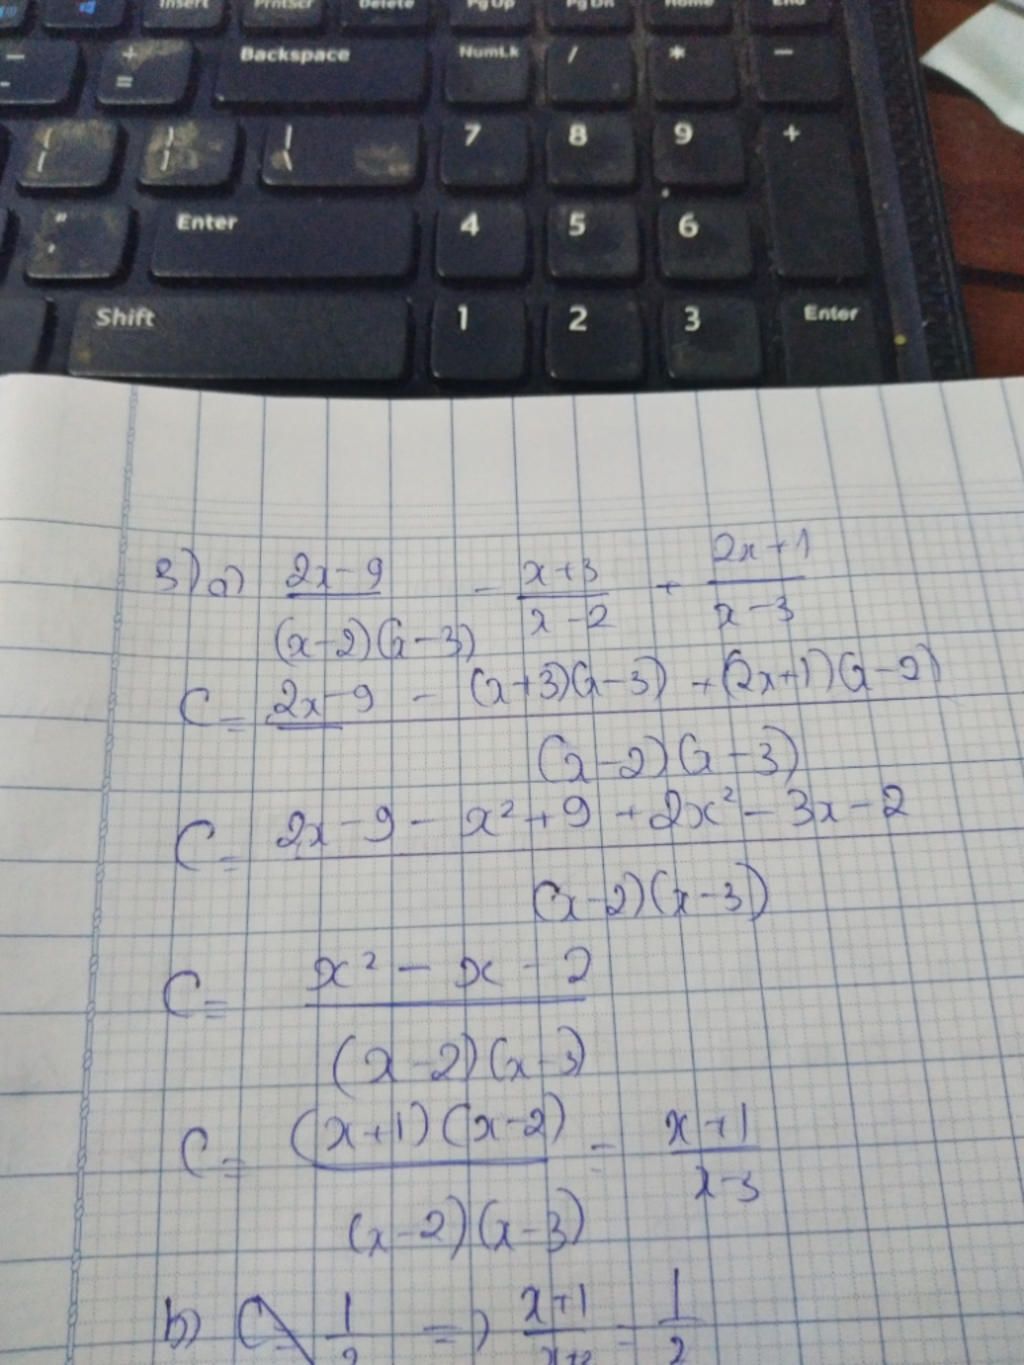 Insert PrntScr Delete PgUp PgDn Home End
+ = Backspace NumLk / * -
{ [ } ] | \ 7 8 9 +
" ' Enter 4 5 6
Shift 1 2 3 Enter
3) a) (2x-9)/((x-2)(x-3)) - (x+3)/(x-2) + (2x+1)/(x-3)
C = (2x-9 - (x+3)(x-3) + (2x+1)(x-2))/((x-2)(x-3))
C = (2x-9 - x²+9 + 2x² - 3x - 2)/((x-2)(x-3))
C = (x² - x - 2)/((x-2)(x-3))
C = ((x+1)(x-2))/((x-2)(x-3)) = (x+1)/(x-3)
b) C = 1/2 => (x+1)/ = 1/2